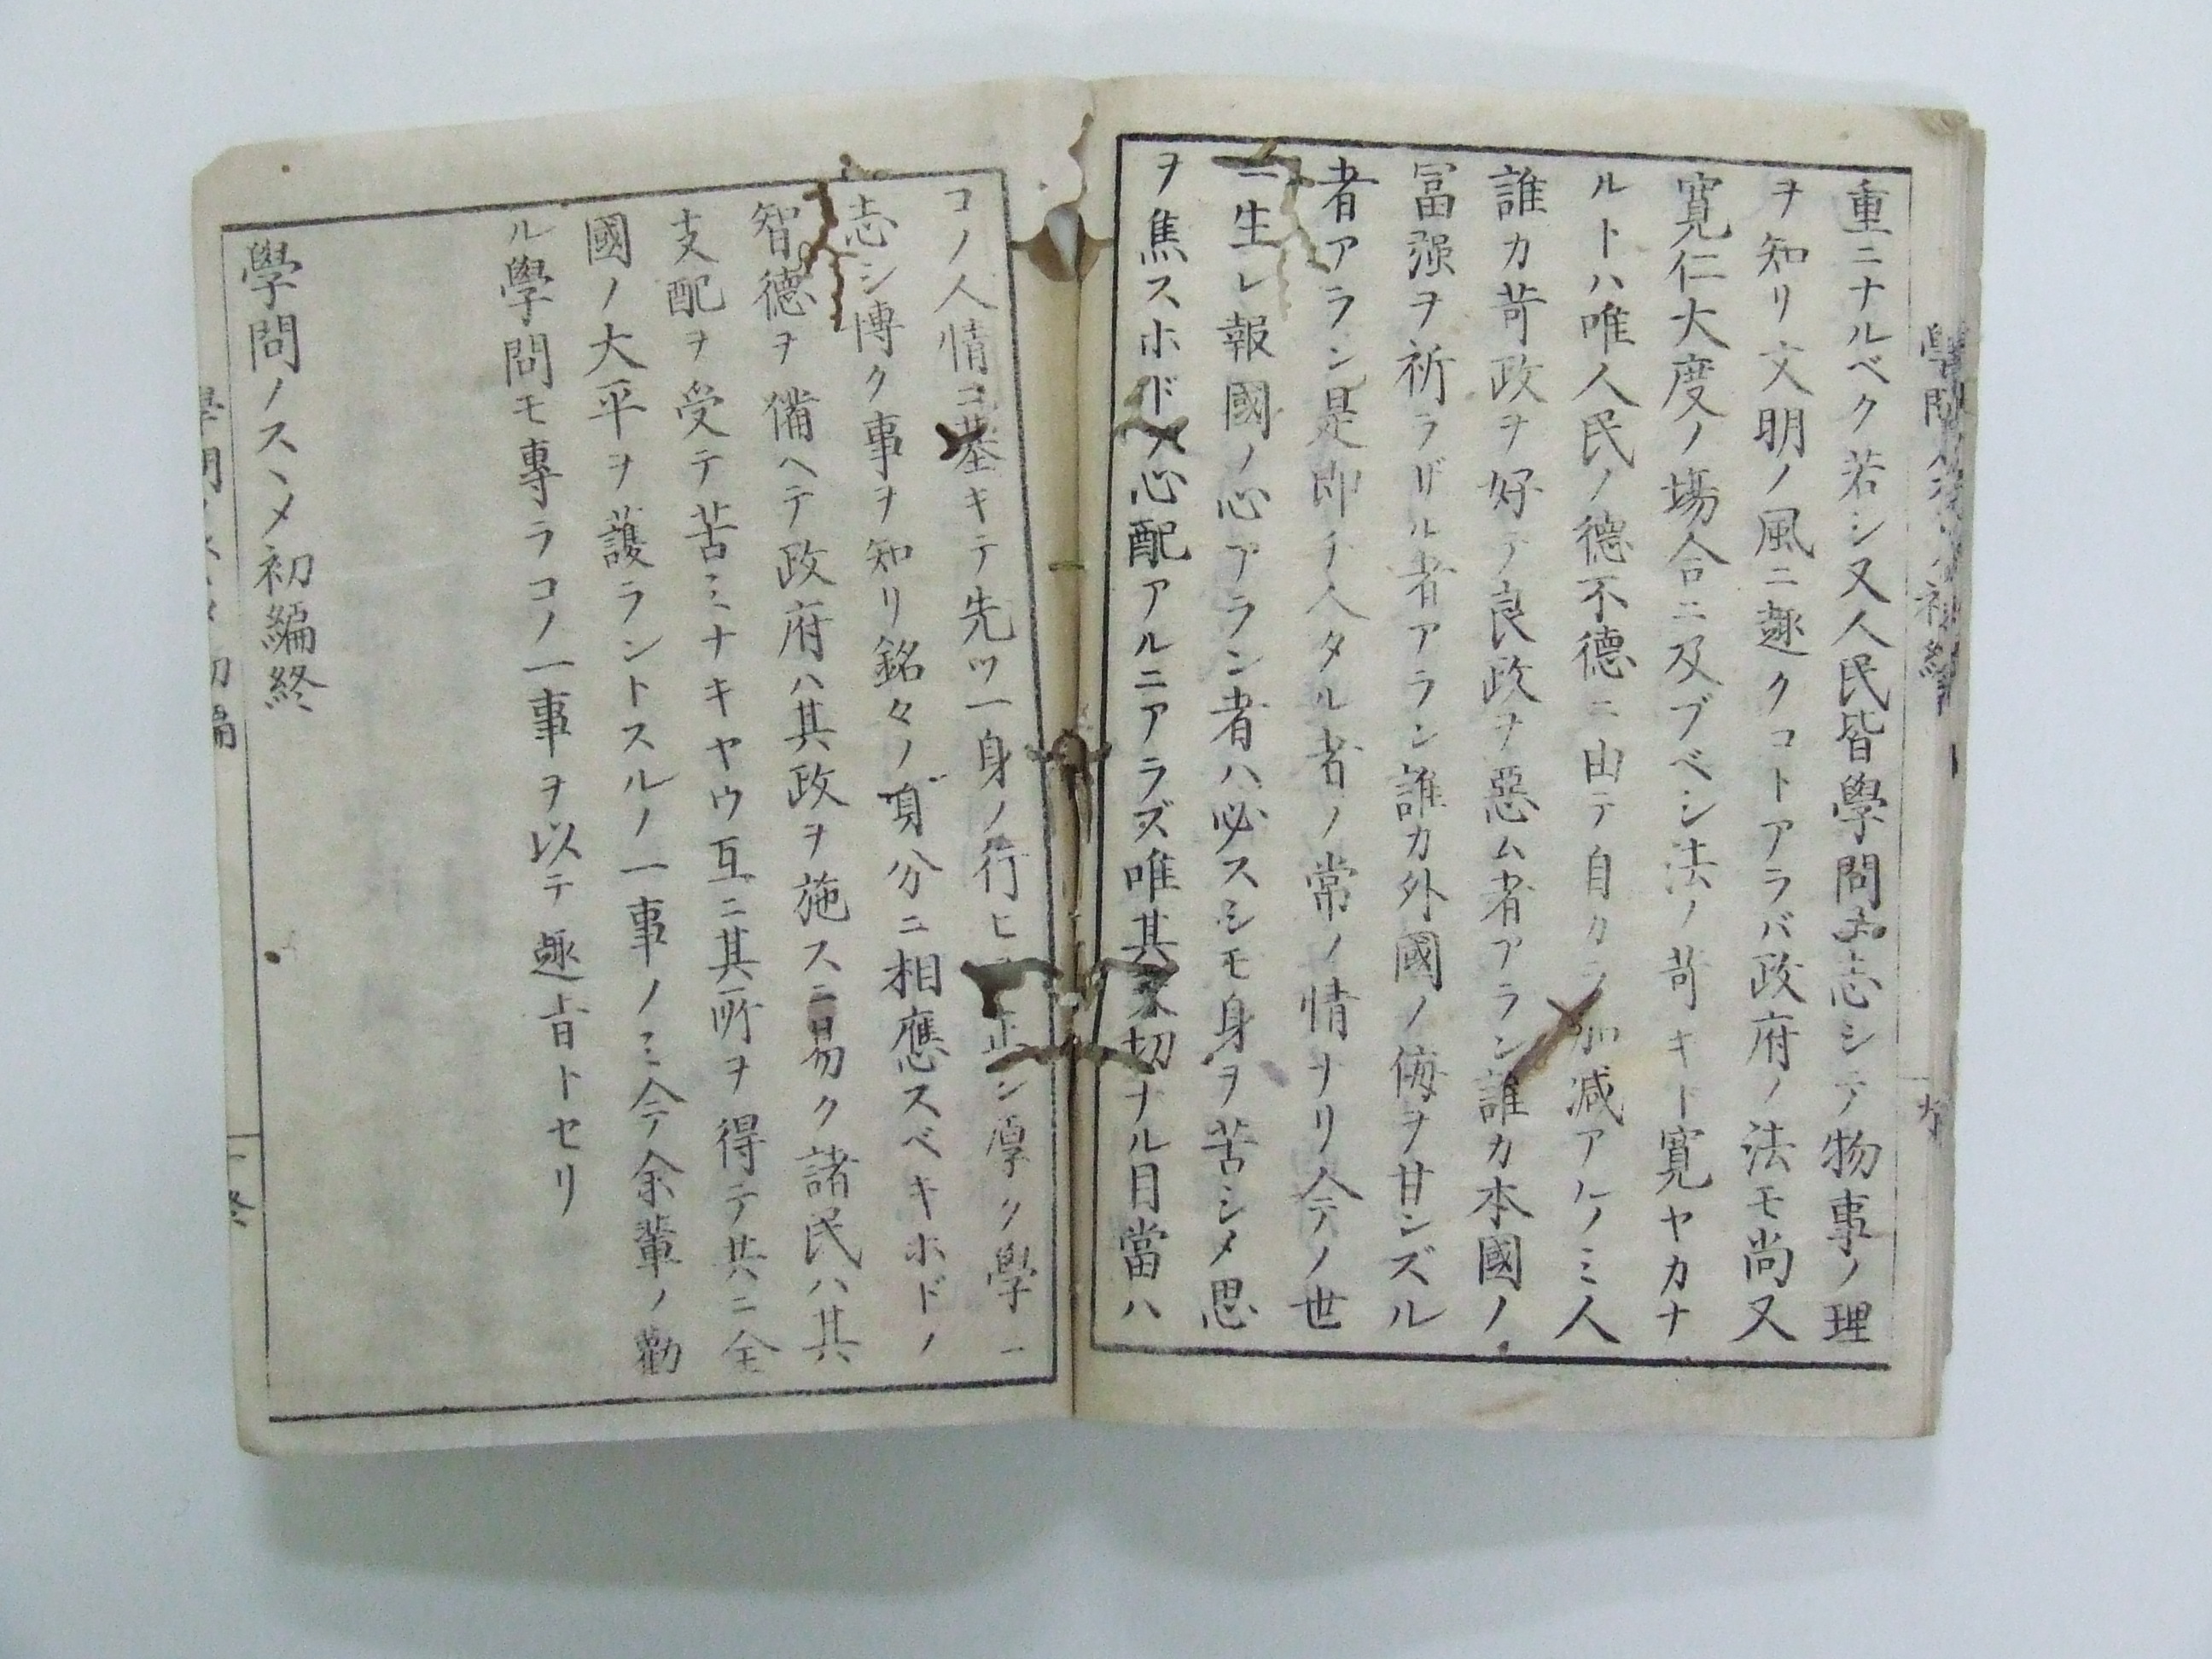 重ニナルベク若シ又人民皆學問ニ志シテ物事ノ理
ヲ知リ文明ノ風ニ趣クコトアラバ政府ノ法モ尚又
寛仁大度ノ場合ニ及ブベシ法ノ苛キト寛ヤカナ
ルトハ唯人民ノ德不德ニ由テ自カラ加减アルノミ人
誰カ苛政ヲ好テ良政ヲ惡ム者アラン誰カ本國ノ
冨强ヲ祈ラザル者アラン誰カ外國ノ侮ヲ甘ンズル
者アラン是即チ人タル者ノ常ノ情ナリ今ノ世
ニ生レ報國ノ心アラン者ハ必スシモ身ヲ苦シメ思
ヲ焦スホドノ心配アルニアラズ唯其大切ナル目當ハ
コノ人情ニ基キテ先ツ一身ノ行ヒヲ正シ厚ク學ニ
志シ博ク事ヲ知リ銘々ノ身分ニ相應スベキホドノ
智德ヲ備ヘテ政府ハ其政ヲ施スニ易ク諸民ハ其
支配ヲ受テ苦ミナキヤウ互ニ其所ヲ得テ共ニ全
國ノ大平ヲ護ラントスルノ一事ノミ今余輩ノ勸
ル學問モ專ラコノ一事ヲ以テ趣旨トセリ
學問ノスヽメ初編終